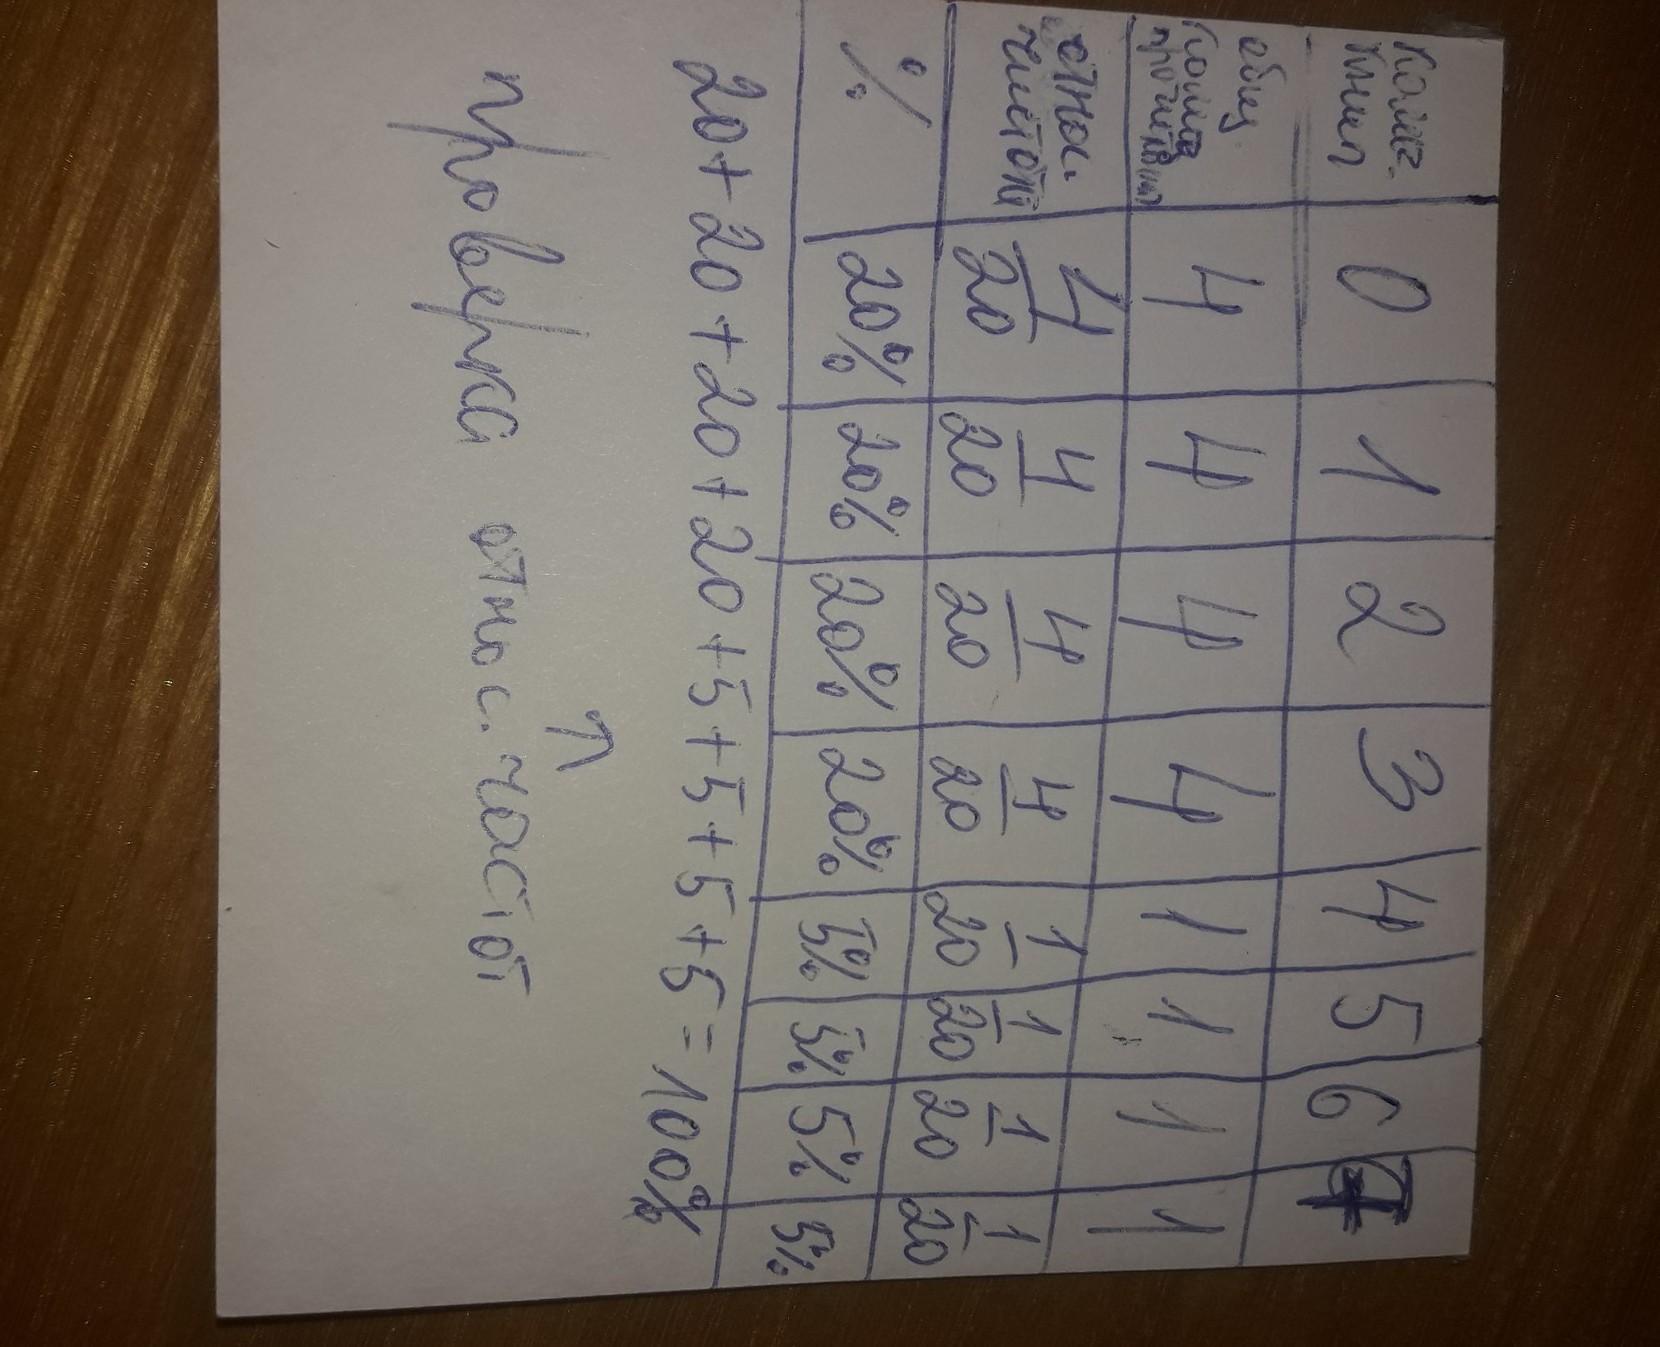 Колич. книг 0 1 2 3 4 5 6 7
общ колич прочитавших 4 4 4 4 1 1 1 1
относ. частота 4/20 4/20 4/20 4/20 1/20 1/20 1/20 1/20
% 20% 20% 20% 20% 5% 5% 5% 5%
20+20+20+20+5+5+5+5=100%
↑
проверка относ. частот